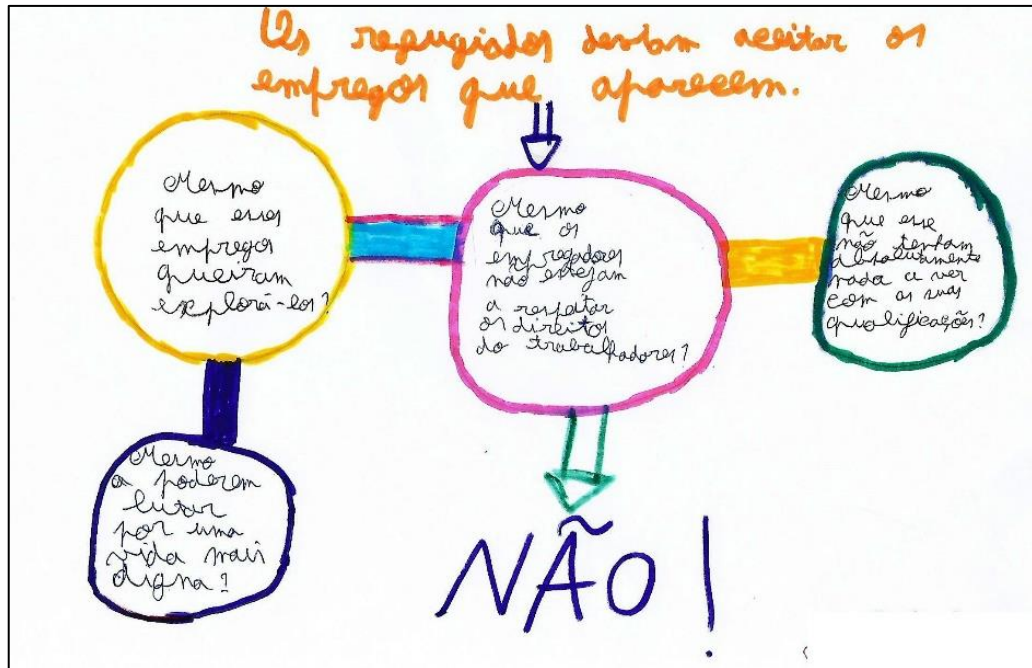 Os refugiados deviam aceitar os
empregos que aparecem.
Mesmo
que esses
empregos
queiram
explorá-los?
Mesmo
que os
empregadores
não estejam
a respeitar
os direitos
do trabalhadores?
Mesmo
que esse
não tenham
absolutamente
nada a ver
com as suas
qualificações?
Mesmo
a poderem
lutar
por uma
vida mais
digna?
NÃO!